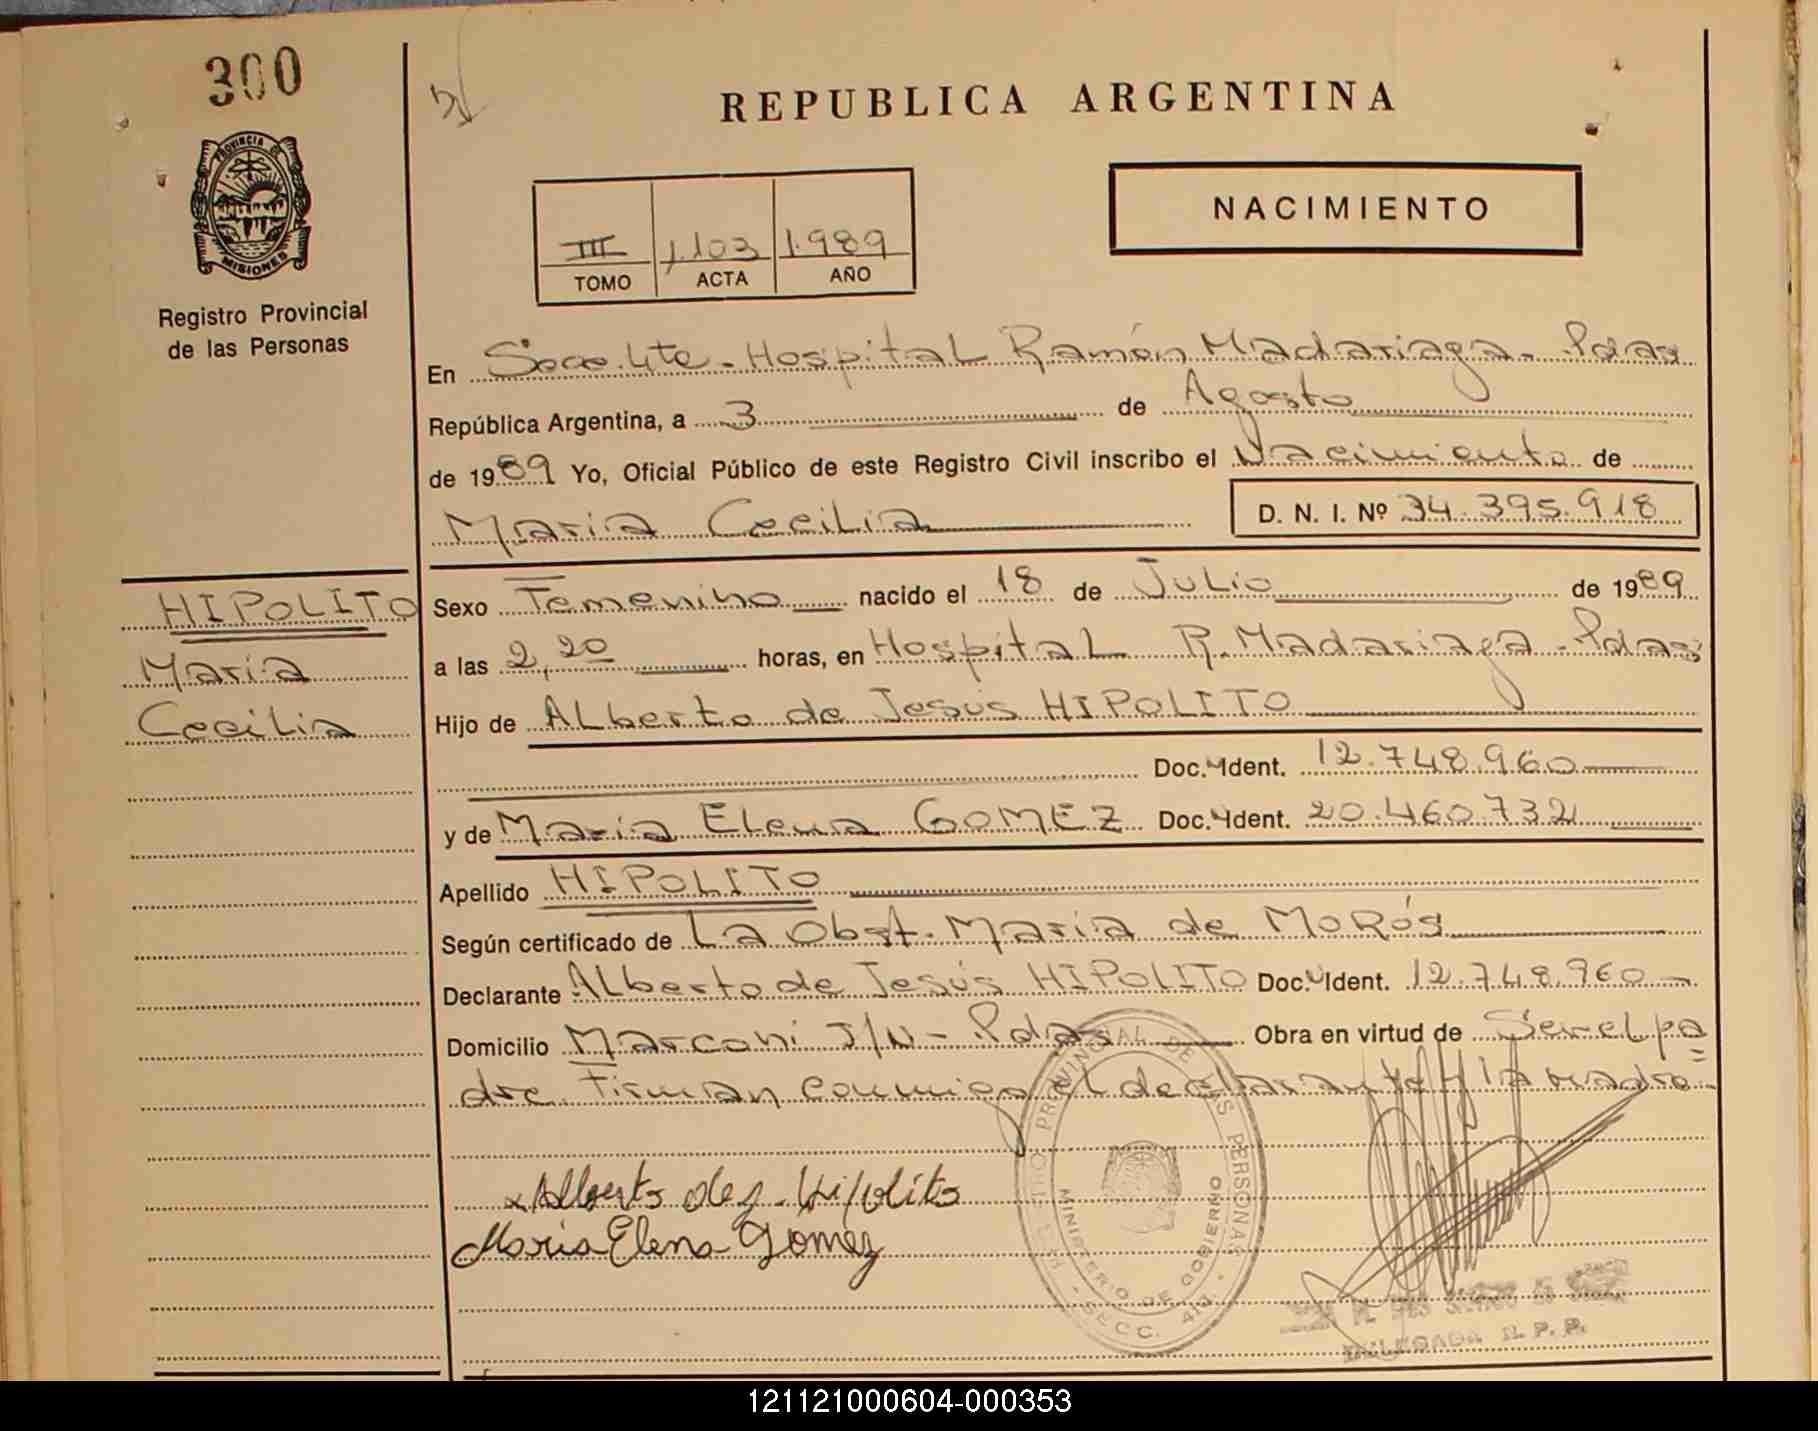 300
REPUBLICA ARGENTINA
PROVINCIA DE
MISIONES
Registro Provincial
de las Personas
NACIMIENTO
III 1.103 1.989
TOMO ACTA AÑO
En Secc. 4ta - Hospital Ramón Madariaga - Pdas
República Argentina, a 3 de Agosto
de 1989 Yo, Oficial Público de este Registro Civil inscribo el Nacimiento de
María Cecilia D. N. I. Nº 34.395.918
HIPOLITO
María
Cecilia
Sexo Femenino nacido el 18 de Julio de 1989
a las 2,20 horas, en Hospital R. Madariaga - Pdas
Hijo de Alberto de Jesús HIPOLITO
Doc. Ident. 12.748.960
y de María Elena GOMEZ Doc. Ident. 20.460.732
Apellido HIPOLITO
Según certificado de La Obst. María de MoRós
Declarante Alberto de Jesús HIPOLITO Doc. Ident. 12.748.960
Domicilio Marconi S/N - Pdas Obra en virtud de Ser el pa
dre. Firman conmigo el declarante y la madre
Alberto de J. Hipolito
Maria Elena Gomez
REGISTRO PROVINCIAL DE LAS PERSONAS
MINISTERIO DE GOBIERNO
SECC. 4ta
DELEGADA R. P. P.
121121000604-000353